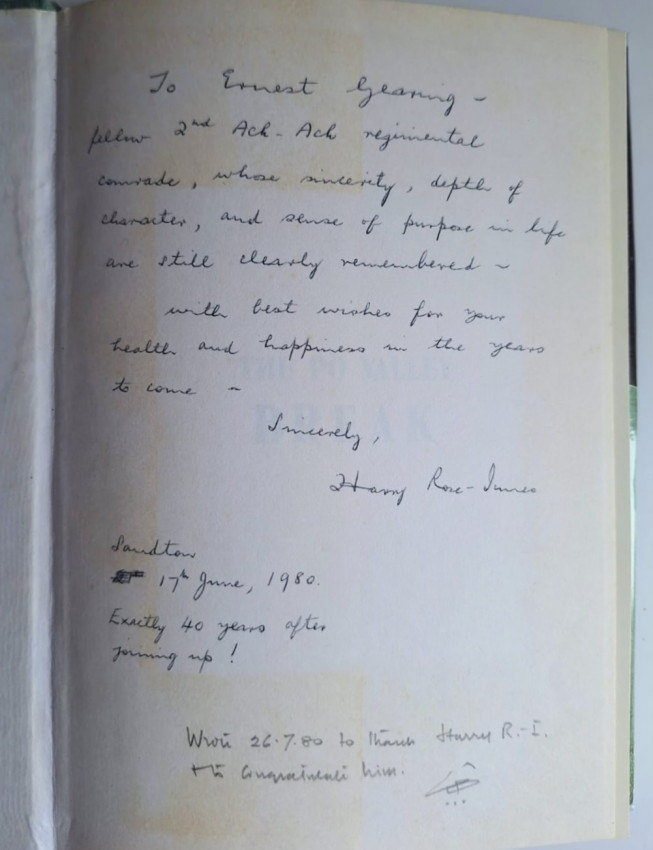 To Ernest Gearing -
fellow 2nd Ack-Ack regimental
comrade, whose sincerity, depth of
character, and sense of purpose in life
are still clearly remembered -
with best wishes for your
health and happiness in the years
to come -
Sincerely,
Harry Rose-Innes
Sandton
17th June, 1980.
Exactly 40 years after
joining up!
Wrote 26.7.80 to thank Harry R.-I.
+ to Congratulate him.
THE PO VALLEY
BREAK